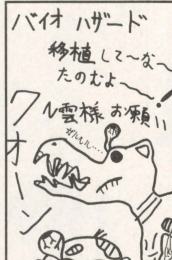 バイオ ハザード
移植して〜な〜
たのむよ〜〜!
N雲様 お願い
ガルルル…
ワオーン